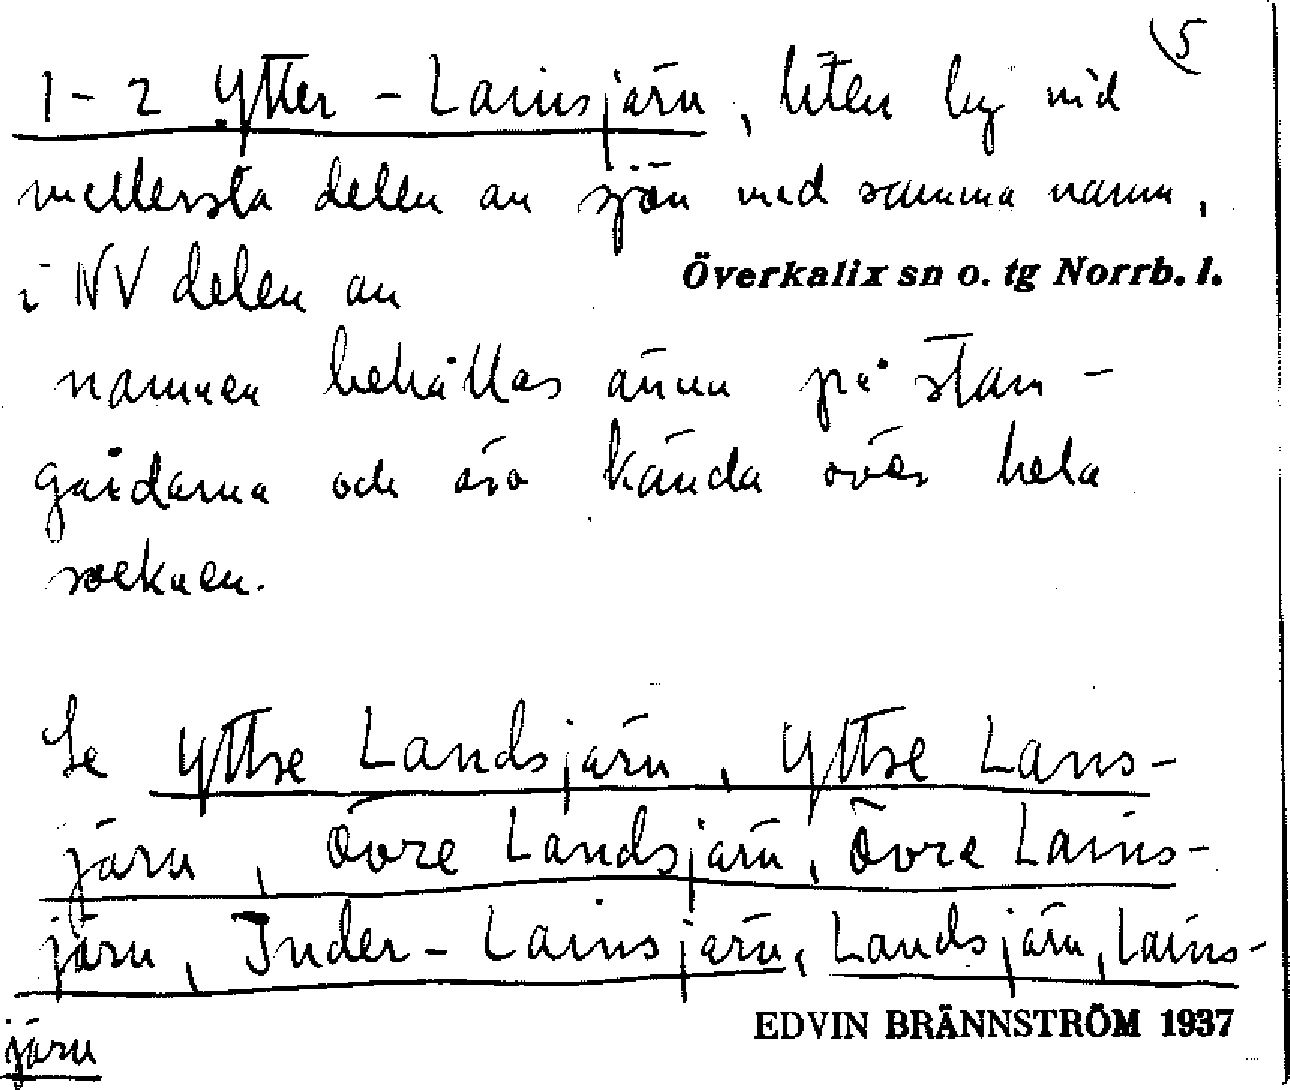 5
1-2 Ytter-Lainsjärv, liten by vid
mellersta delen av sjön med samma namn,
i NV delen av Överkalix sn o. tg Norrb. l.
namnen behållas ännu på stam-
gårdarna och äro kända över hela
socknen.
Se Yttre Landsjärv, Yttre Lans-
järv, Övre Landsjärv, Övre Lains-
järv, Inder-Lainsjärv, Landsjärv, Lains-
järv
EDVIN BRÄNNSTRÖM 1937